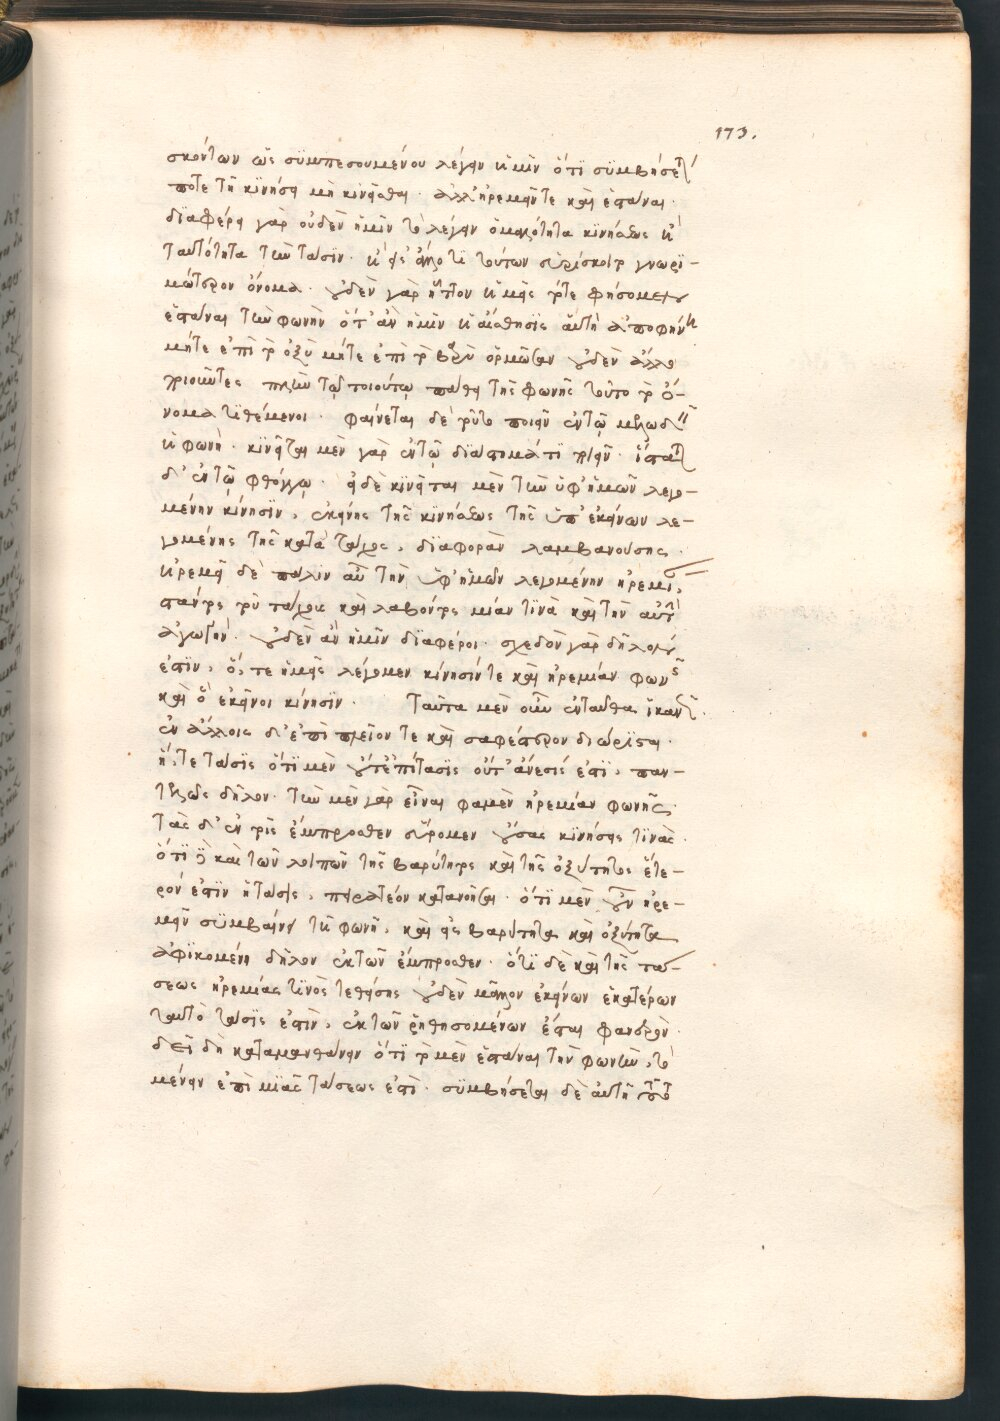 173.
σκόντων ὡς συμπεσουμένου λέγειν ἡμῖν ὅτι συμβήσεται
ποτε τῇ κινήσει μὴ κινεῖσθαι. ἀλλ' ἠρεμεῖν τε καὶ ἑστάναι.
διαφέρει γὰρ οὐδὲν ἡμῖν τὸ λέγειν ὁμαλότητα κινήσεως ἢ
ταυτότητα τὴν τάσιν. ἢ εἰ ἄλλο τι τούτων εὑρίσκοιτο γνωρι-
μώτερον ὄνομα. οὐδὲν γὰρ ἧττον ἡμεῖς τότε φήσομεν
ἑστάναι τὴν φωνὴν ὅτ' ἂν ἡμῖν ἡ αἴσθησις αὐτὴν ἀποφήνῃ
μήτε ἐπὶ τὸ ὀξὺ μήτε ἐπὶ τὸ βαρὺ ὁρμῶσαν οὐδὲν ἄλλο
ποιοῦντες πλὴν τῷ τοιούτῳ πάθει τῆς φωνῆς τοῦτο τὸ ὄ-
νομα τιθέμενοι. φαίνεται δὲ τοῦτο ποιεῖν ἐν τῷ μελῳδεῖν
ἡ φωνή. κινεῖται μὲν γὰρ ἐν τῷ διάστημά τι ποιεῖν. ἵσταται
δ' ἐν τῷ φθόγγῳ. εἰ δὲ κινεῖται μὲν τὴν ὑφ' ἡμῶν λεγο-
μένην κίνησιν, ἐκείνης τῆς κινήσεως τῆς ὑπ' ἐκείνων λε-
γομένης τῆς κατὰ τάχος, διαφορὰν λαμβανούσης.
ἠρεμεῖ δὲ πάλιν αὖ τὴν ὑφ' ἡμῶν λεγομένην ἠρεμίαν,
στάντος τοῦ τάχους καὶ λαβόντος μίαν τινὰ καὶ τὴν αὐτὴν
ἀγωγήν. οὐδὲν ἂν ἡμῖν διαφέροι. σχεδὸν γὰρ δῆλον
ἐστὶν, ὅ, τε ἡμεῖς λέγομεν κίνησίν τε καὶ ἠρεμίαν φωνῆς
καὶ ὃ ἐκεῖνοι κίνησιν. Ταῦτα μὲν οὖν ἐνταῦθα ἱκανῶς.
ἐν ἄλλοις δ' ἐπὶ πλεῖόν τε καὶ σαφέστερον διώρισται.
ἥ, τε τάσις ὅτι μὲν οὔτ' ἐπίτασις οὔτ' ἄνεσίς ἐστι, παν-
τελῶς δῆλον. τὴν μὲν γὰρ εἶναι φαμὲν ἠρεμίαν φωνῆς.
τὰς δ' ἐν τοῖς ἔμπροσθεν εὕρομεν οὔσας κινήσεις τινάς.
ὅτι δὲ καὶ τῶν λοιπῶν τῆς βαρύτητος καὶ τῆς ὀξύτητος ἕτε-
ρόν ἐστιν ἡ τάσις, πειρατέον κατανοῆσαι. ὅτι μὲν οὖν ἠρε-
μεῖν συμβαίνει τῇ φωνῇ, καὶ εἰς βαρύτητα καὶ ὀξύτητα
ἀφικομένῃ δῆλον ἐκ τῶν ἔμπροσθεν. ὅτι δὲ καὶ τῆς τά-
σεως ἠρεμίας τινὸς τεθείσης οὐδὲν μᾶλλον ἐκείνων ἑκατέρων
ταυτὸ τάσις ἐστὶν, ἐκ τῶν ῥηθησομένων ἔσται φανερόν.
δεῖ δὴ καταμανθάνειν ὅτι τὸ μὲν ἑστάναι τὴν φωνὴν, τὸ
μένειν ἐπὶ μιᾶς τάσεως ἐστί. συμβήσεται δὲ αὐτῇ τοῦτο